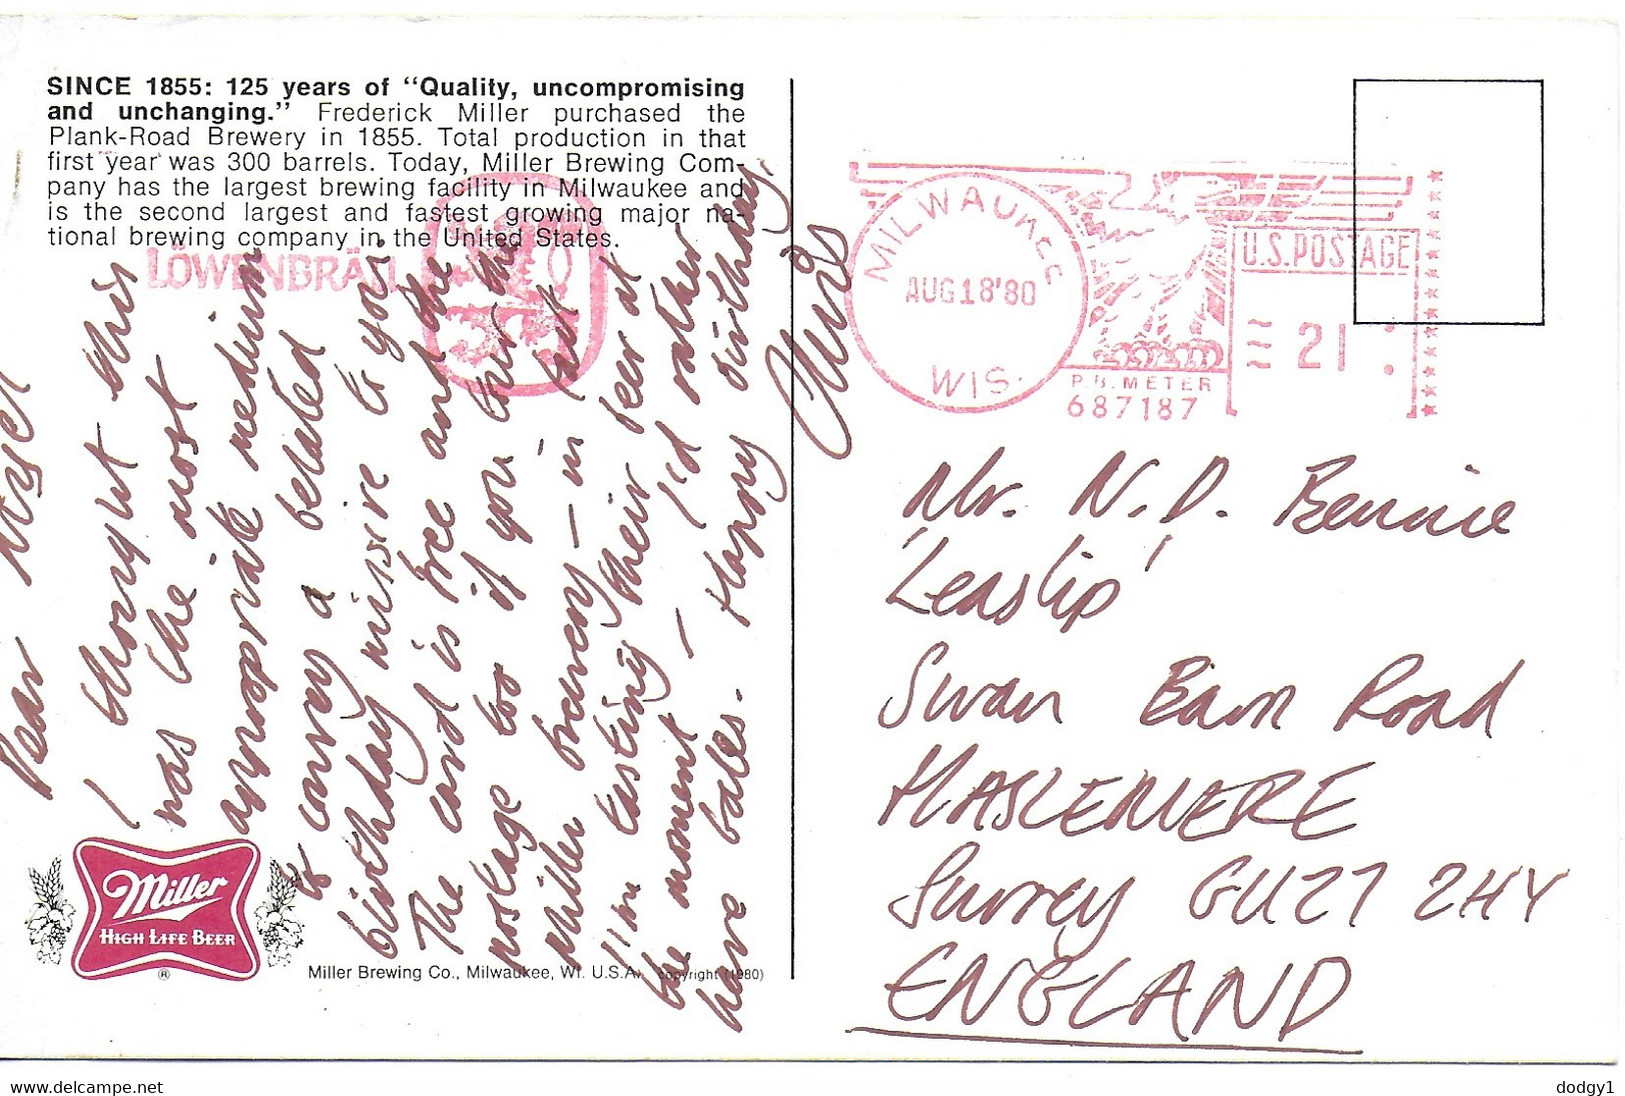 SINCE 1855: 125 years of “Quality, uncompromising
and unchanging.” Frederick Miller purchased the
Plank-Road Brewery in 1855. Total production in that
first year was 300 barrels. Today, Miller Brewing Com-
pany has the largest brewing facility in Milwaukee and
is the second largest and fastest growing major na-
tional brewing company in the United States.
LÖWENBRÄU
Dear Nigel
I thought this
was the most
appropriate medium
to convey a belated
birthday missive to you:
The card is free and the
postage too if you tour the
Miller brewery – in fact
I'm tasting their beer at
the moment – I'd rather
have bales. Happy birthday,
Chris
Miller
HIGH LIFE BEER
®
Miller Brewing Co., Milwaukee, WI. U.S.A. copyright (1980)
MILWAUKEE
AUG 18 '80
WIS.
P.B. METER
687187
U.S. POSTAGE
21
Mr. N. D. Bennie
'Leaslip'
Swan Barn Road
HASLEMERE
Surrey GU27 2HY
ENGLAND
www.delcampe.net
dodgy1